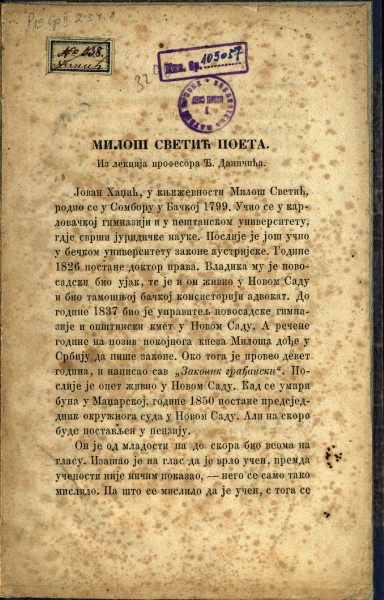 No 638.
Инв. Бр. 105057
МИЛОШ СВЕТИЋ ПОЕТА.
Из лекција професора Ђ. Даничића.
Јован Хаџић, у књижевности Милош Светић,
родио се у Сомбору у Бачкој 1799. Учио се у кар-
ловачкој гимназији и у пештанском университету,
гдје сврши јуридичке науке. Послије је још учио
у бечком университету законе аустријске. Године
1826 постане доктор права. Владика му је ново-
садски био ујак, те је и он живио у Новом Саду
и био тамошњој бачкој консисторији адвокат. До
године 1837 био је управитељ новосадске гимна-
зије и општински кмет у Новом Саду. А речене
године на позив покојнога кнеза Милоша дође у
Србију да пише законе. Око тога је провео девет
година, и написао сав „Законик грађански“. По-
слије је опет живио у Новом Саду. Кад се умири
буна у Маџарској, године 1850 постане предсјед-
дник окружнога суда у Новом Саду. Али на скоро
буде постављен у пензију.
Он је од младости па до скора био веома на
гласу. Изашао је на глас да је врло учен, премда
учености није ничим показао, — него се само тако
мислило. Па што се мислило да је учен, с тога се